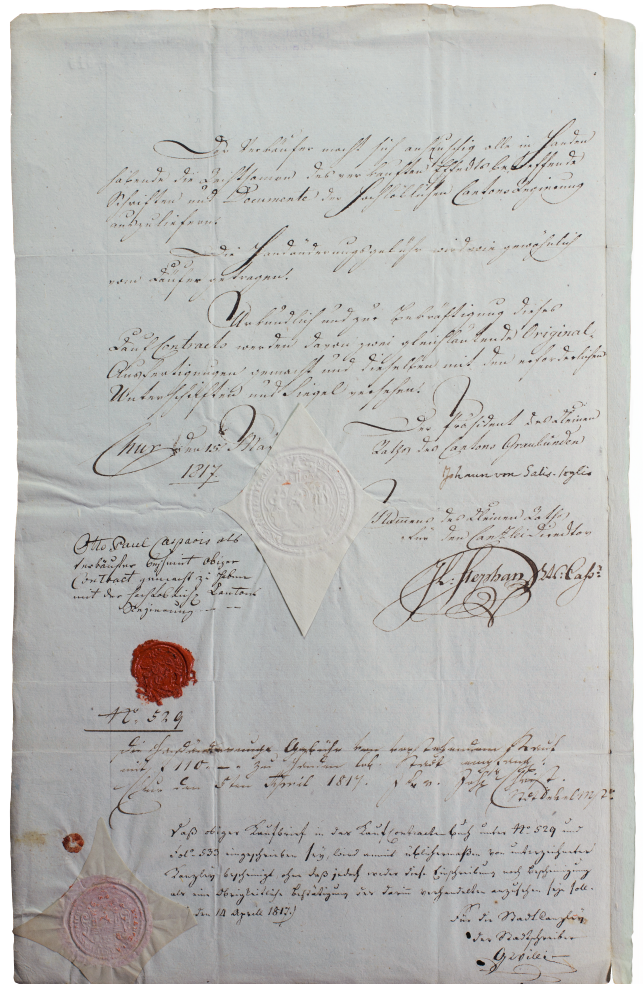 Der Verkäufer macht sich anheischig alle in Handen
habende die Rechtsamen des verkauften betreffende
Schriften und Documente der Hochlöblichen Cantonsregierung
auszuliefern.
Die Handänderungsgebühr wird wie gewöhnlich
vom Käufer getragen.
Urkundlich und zur Bekräftigung dieses
Kauf Contracts werden davon zwei gleichlautende Original-
Ausfertigungen gemacht und dieselben mit den erforderlichen
Unterschriften und Siegel versehen.
Chur den 15 May
1817
Der Präsident des Kleinen
Raths des Cantons Graubünden
Johann von Salis-Soglio
Namens des Kleinen Raths
Für den Canzlei-Director
Stephan
Otto Paul Casparis als
Verkäufer bescheint obiger
Contract gemacht zu haben
mit der Hochlöbl. Cantons
Regierung
No. 529
Die Handänderungs Gebühr von vorstehendem Kauf
mit f 110 zu Handen lob. Stadt empfangt.
Chur den April 1817.
Daß obiger Kaufbrief in der Kauf Contracten Buch unter No. 529 und
Fol. 533 eingeschrieben sey, wird anmit üblichermaßen von unterzeichneter
Kanzley bescheinigt ohne daß jedoch weder diese Einschreibung noch Bescheinigung
als eine Obrigkeitliche Bestätigung der darin verhandelten anzusehen seyn soll.
den 14 Aprill 1817.
Für die Stadtkanzley
der Stadtschreiber